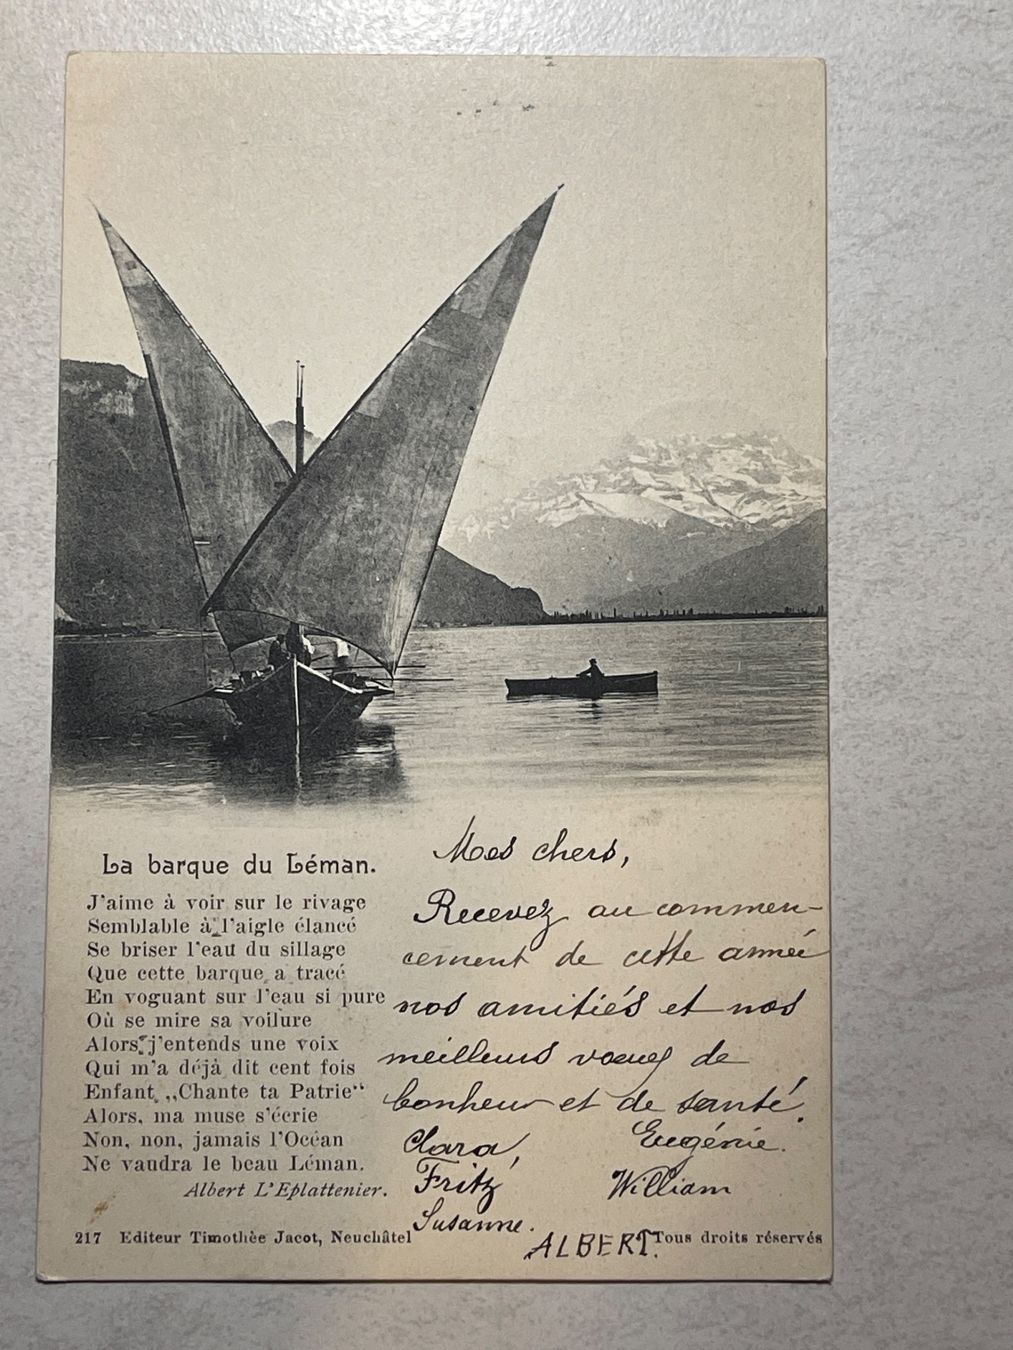 La barque du Léman.
J'aime à voir sur le rivage
Semblable à l'aigle élancé
Se briser l'eau du sillage
Que cette barque a tracé
En voguant sur l'eau si pure
Où se mire sa voilure
Alors j'entends une voix
Qui m'a déjà dit cent fois
Enfant „Chante ta Patrie“
Alors, ma muse s'écrie
Non, non, jamais l'Océan
Ne vaudra le beau Léman.
Albert L'Eplattenier.
Mes chers,
Recevez au commen-
cement de cette année
nos amitiés et nos
meilleurs voeux de
bonheur et de santé.
Clara, Eugénie.
Fritz William
Susanne.
ALBERT.
217 Editeur Timothèe Jacot, Neuchâtel Tous droits réservés